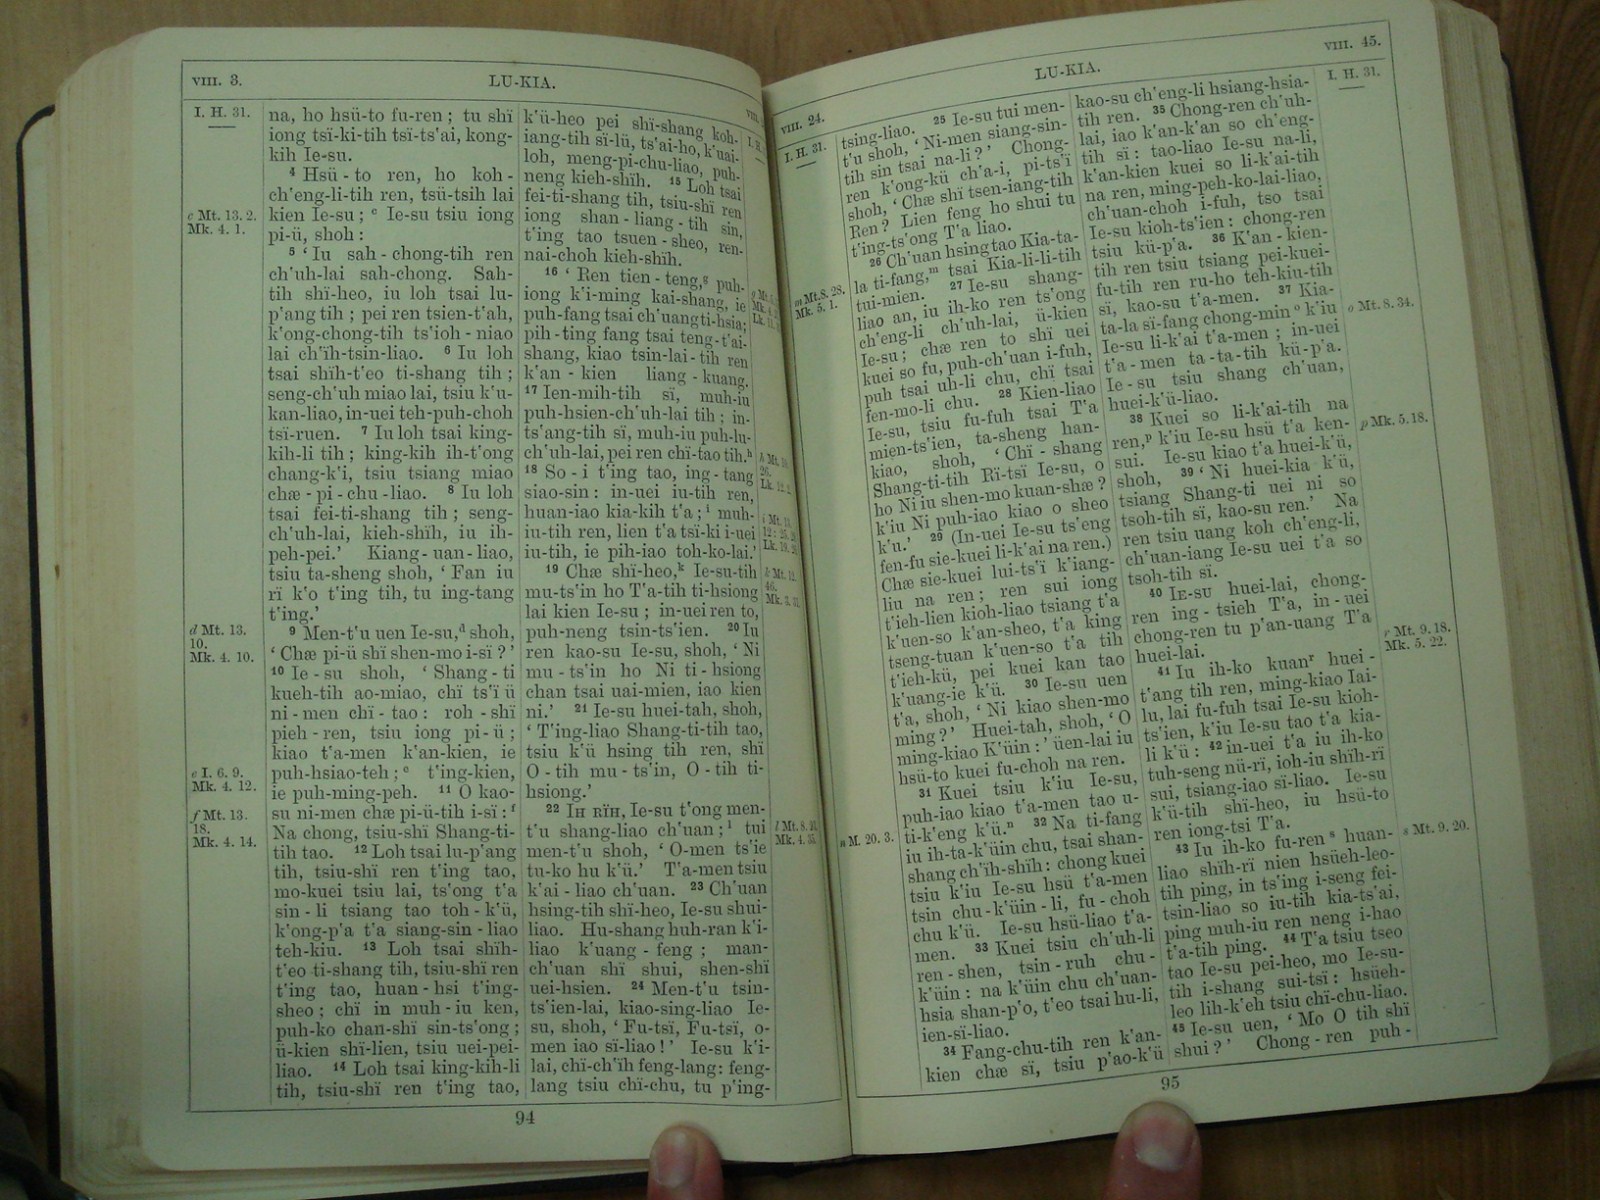 VIII. 3.
LU-KIA.
I. H. 31.
c Mt. 13. 2.
Mk. 4. 1.
d Mt. 13.
10.
Mk. 4. 10.
e I. 6. 9.
Mk. 4. 12.
f Mt. 13.
18.
Mk. 4. 14.
na, ho hsü-to fu-ren ; tu shï
iong tsï-ki-tih tsï-ts'ai, kong-
kih Ie-su.
4 Hsü-to ren, ho koh-
ch'eng-li-tih ren, tsü-tsih lai
kien Ie-su ; c Ie-su tsiu iong
pi-ü, shoh :
5 ‘ Iu sah-chong-tih ren
ch'uh-lai sah-chong. Sah-
tih shï-heo, iu loh tsai lu-
p'ang tih ; pei ren tsien-t'ah,
k'ong-chong-tih ts'ioh-niao
lai ch'ïh-tsin-liao. 6 Iu loh
tsai shïh-t'eo ti-shang tih ;
seng-ch'uh miao lai, tsiu k'u-
kan-liao, in-uei teh-puh-choh
tsï-ruen. 7 Iu loh tsai king-
kih-li tih ; king-kih ih-t'ong
chang-k'i, tsiu tsiang miao
chæ-pi-chu-liao. 8 Iu loh
tsai fei-ti-shang tih ; seng-
ch'uh-lai, kieh-shïh, iu ih-
peh-pei.’ Kiang-uan-liao,
tsiu ta-sheng shoh, ‘ Fan iu
rï k'o t'ing tih, tu ing-tang
t'ing.’
9 Men-t'u uen Ie-su,d shoh,
‘ Chæ pi-ü shï shen-mo i-sï ?’
10 Ie-su shoh, ‘ Shang-ti
kueh-tih ao-miao, chï ts'ï ü
ni-men chï-tao : roh-shï
pieh-ren, tsiu iong pi-ü ;
kiao t'a-men k'an-kien, ie
puh-hsiao-teh ; e t'ing-kien,
ie puh-ming-peh. 11 O kao-
su ni-men chæ pi-ü-tih i-sï : f
Na chong, tsiu-shï Shang-ti-
tih tao. 12 Loh tsai lu-p'ang
tih, tsiu-shï ren t'ing tao,
mo-kuei tsiu lai, ts'ong t'a
sin-li tsiang tao toh-k'ü,
k'ong-p'a t'a siang-sin-liao
teh-kiu. 13 Loh tsai shïh-
t'eo ti-shang tih, tsiu-shï ren
t'ing tao, huan-hsi t'ing-
sheo ; chï in muh-iu ken,
puh-ko chan-shï sin-ts'ong ;
ü-kien shï-lien, tsiu uei-pei-
liao. 14 Loh tsai king-kih-li
tih, tsiu-shï ren t'ing tao,
k'ü-heo pei shï-shang koh-
iang-tih sï-lü, ts'ai-ho, k'uai-
loh, meng-pi-chu-liao, puh-
neng kieh-shïh. 15 Loh tsai
fei-ti-shang tih, tsiu-shï ren
iong shan-liang-tih sin,
t'ing tao tsuen-sheo, ren-
nai-choh kieh-shïh.
16 ‘ Ren tien-teng,g puh-
iong k'i-ming kai-shang, ie
puh-fang tsai ch'uang ti-hsia;
pih-ting fang tsai teng-t'ai-
shang, kiao tsin-lai-tih ren
k'an-kien liang-kuang.
17 Ien-mih-tih sï, muh-iu
puh-hsien-ch'uh-lai tih ; in-
ts'ang-tih sï, muh-iu puh-lu-
ch'uh-lai, pei ren chï-tao tih.h
18 So-i t'ing tao, ing-tang
siao-sin : in-uei iu-tih ren,
huan-iao kia-kih t'a ; i muh-
iu-tih ren, lien t'a tsï-ki i-uei
iu-tih, ie pih-iao toh-ko-lai.’
19 Chæ shï-heo,k Ie-su-tih
mu-ts'in ho T'a-tih ti-hsiong
lai kien Ie-su ; in-uei ren to,
puh-neng tsin-ts'ien. 20 Iu
ren kao-su Ie-su, shoh, ‘ Ni
mu-ts'in ho Ni ti-hsiong
chan tsai uai-mien, iao kien
ni.’ 21 Ie-su huei-tah, shoh,
‘ T'ing-liao Shang-ti-tih tao,
tsiu k'ü hsing tih ren, shï
O-tih mu-ts'in, O-tih ti-
hsiong.’
22 IH RÏH, Ie-su t'ong men-
t'u shang-liao ch'uan ; l tui
men-t'u shoh, ‘ O-men ts'ie
tu-ko hu k'ü.’ T'a-men tsiu
k'ai-liao ch'uan. 23 Ch'uan
hsing-tih shï-heo, Ie-su shui-
liao. Hu-shang huh-ran k'i-
liao k'uang-feng ; man-
ch'uan shï shui, shen-shï
uei-hsien. 24 Men-t'u tsin-
ts'ien-lai, kiao-sing-liao Ie-
su, shoh, ‘ Fu-tsï, Fu-tsï, o-
men iao sï-liao !’ Ie-su k'i-
lai, chï-ch'ïh feng-lang : feng-
lang tsiu chï-chu, tu p'ing-
l Mt. 8. 
Mk. 4. 35.
94
VIII. 24.
LU-KIA.
VIII. 45.
I. H. 31.
m Mt. 8. 28.
Mk. 5. 1.
n M. 20. 3.
tsing-liao. 25 Ie-su tui men-
t'u shoh, ‘ Ni-men siang-sin-
tih sin tsai na-li ?’ Chong-
ren k'ong-kü ch'a-i, pi-ts'ï
shoh, ‘ Chæ shï tsen-iang-tih
Ren ? Lien feng ho shui tu
t'ing-ts'ong T'a liao.
26 Ch'uan hsing tao Kia-ta-
la ti-fang,m tsai Kia-li-li-tih
tui-mien. 27 Ie-su shang-
liao an, iu ih-ko ren ts'ong
ch'eng-li ch'uh-lai, ü-kien
Ie-su ; chæ ren to shï uei
kuei so fu, puh-ch'uan i-fuh,
puh tsai uh-li chu, chï tsai
fen-mo-li chu. 28 Kien-liao
Ie-su, tsiu fu-fuh tsai T'a
mien-ts'ien, ta-sheng han-
kiao, shoh, ‘ Chï-shang
Shang-ti-tih Rï-tsï Ie-su, o
ho Ni iu shen-mo kuan-shæ ?
k'iu Ni puh-iao kiao o sheo
k'u.’ 29 (In-uei Ie-su ts'eng
fen-fu sie-kuei li-k'ai na ren.)
Chæ sie-kuei lui-ts'ï k'iang-
liu na ren ; ren sui iong
t'ieh-lien kioh-liao tsiang t'a
k'uen-so k'an-sheo, t'a king
tseng-tuan k'uen-so t'a tih
t'ieh-kü, pei kuei kan tao
k'uang-ie k'ü. 30 Ie-su uen
t'a, shoh, ‘ Ni kiao shen-mo
ming ?’ Huei-tah, shoh, ‘ O
ming-kiao K'üin :’ üen-lai iu
hsü-to kuei fu-choh na ren.
31 Kuei tsiu k'iu Ie-su,
puh-iao kiao t'a-men tao u-
ti-k'eng k'ü.n 32 Na ti-fang
iu ih-ta-k'üin chu, tsai shan-
shang ch'ïh-shïh : chong kuei
tsiu k'iu Ie-su hsü t'a-men
tsin chu-k'üin-li, fu-choh
chu k'ü. Ie-su hsü-liao t'a-
men. 33 Kuei tsiu ch'uh-li
ren-shen, tsin-ruh chu-
k'üin : na k'üin chu ch'uan-
hsia shan-p'o, t'eo tsai hu-li,
ien-sï-liao.
34 Fang-chu-tih ren k'an-
kien chæ sï, tsiu p'ao-k'ü
kao-su ch'eng-li hsiang-hsia-
tih ren. 35 Chong-ren ch'uh-
lai, iao k'an-k'an so ch'eng-
tih sï : tao-liao Ie-su na-li,
k'an-kien kuei so li-k'ai-tih
na ren, ming-peh-ko-lai-liao,
ch'uan-choh i-fuh, tso tsai
Ie-su kioh-ts'ien : chong-ren
tsiu kü-p'a. 36 K'an-kien-
tih ren tsiu tsiang pei-kuei-
fu-tih ren ru-ho teh-kiu-tih
sï, kao-su t'a-men. 37 Kia-
ta-la sï-fang chong-min o k'iu
Ie-su li-k'ai t'a-men ; in-uei
t'a-men ta-ta-tih kü-p'a.
Ie-su tsiu shang ch'uan,
huei-k'ü-liao.
38 Kuei so li-k'ai-tih na
ren,p k'iu Ie-su hsü t'a ken-
sui. Ie-su kiao t'a huei-k'ü,
shoh, 39 ‘ Ni huei-kia k'ü,
tsiang Shang-ti uei ni so
tsoh-tih sï, kao-su ren.’ Na
ren tsiu uang koh ch'eng-li,
ch'uan-iang Ie-su uei t'a so
tsoh-tih sï.
40 IE-SU huei-lai, chong-
ren ing-tsieh T'a, in-uei
chong-ren tu p'an-uang T'a
huei-lai.
41 Iu ih-ko kuan r huei-
t'ang tih ren, ming-kiao Iai-
lu, lai fu-fuh tsai Ie-su kioh-
ts'ien, k'iu Ie-su tao t'a kia-
li k'ü : 42 in-uei t'a iu ih-ko
tuh-seng nü-rï, ioh-iu shïh-rï
sui, tsiang-iao sï-liao. Ie-su
k'ü-tih shï-heo, iu hsü-to
ren iong-tsi T'a.
43 Iu ih-ko fu-ren s huan-
liao shïh-rï nien hsüeh-leo-
tih ping, in ts'ing i-seng fei-
tsin-liao so iu-tih kia-ts'ai,
ping muh-iu ren neng i-hao
t'a-tih ping. 44 T'a tsiu tseo
tao Ie-su pei-heo, mo Ie-su-
tih i-shang sui-tsï : hsüeh-
leo lih-k'eh tsiu chï-chu-liao.
45 Ie-su uen, ‘ Mo O tih shï
shui ?’ Chong-ren puh-
I. H. 31.
o Mt. 8. 34.
p Mk. 5. 18.
r Mt. 9. 18.
Mk. 5. 22.
s Mt. 9. 20.
95